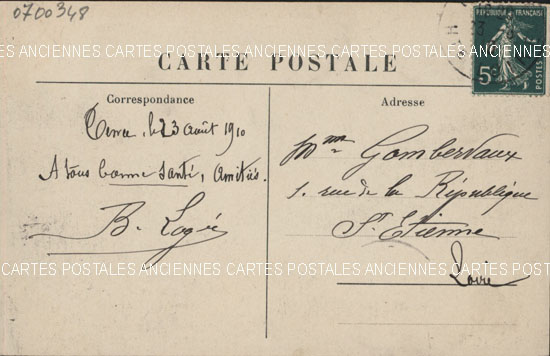 0700348
RÉPUBLIQUE FRANÇAISE
5c
POSTES
CARTES POSTALES ANCIENNES CARTES POSTALES ANCIENNES CARTES POSTALES ANCIENNES
CARTE POSTALE
Correspondance
le 23 Août 1910
A tous bonne santé, amitiés.
B.
Adresse
Mme Gombervaux
1. rue de la République
St. Etienne
Loire
CARTES POSTALES ANCIENNES CARTES POSTALES ANCIENNES CARTES POSTALES ANCIENNES